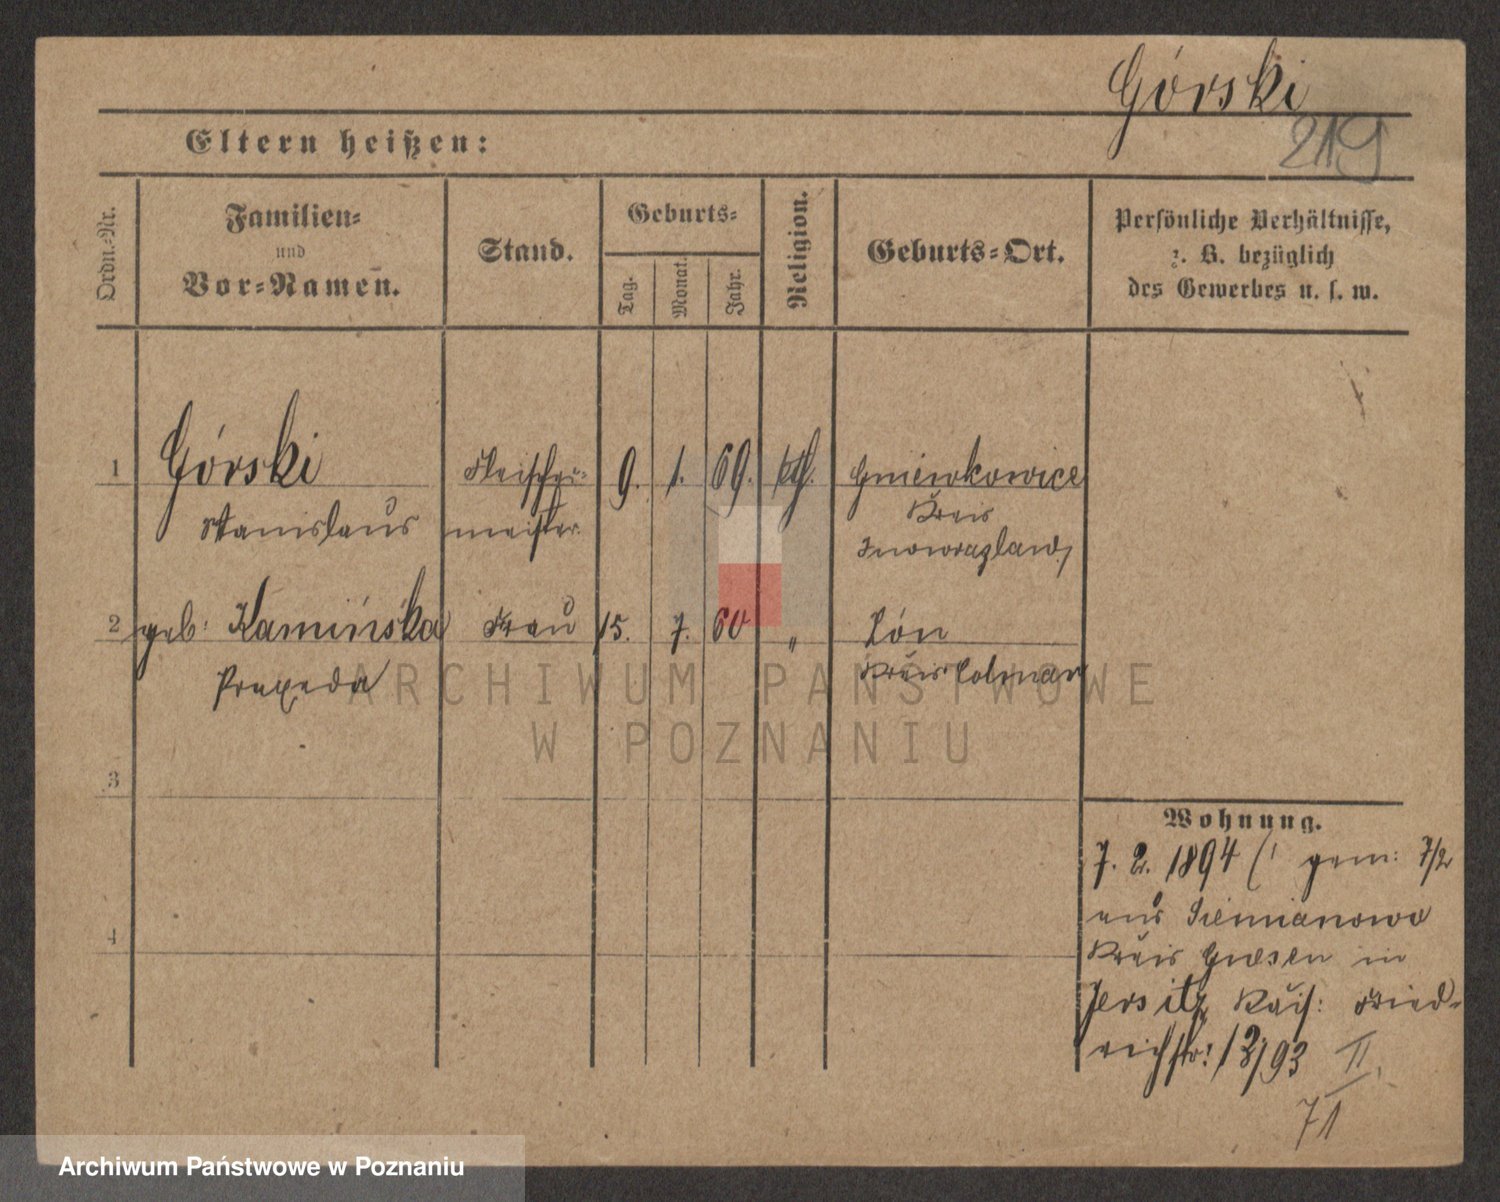 Górski
219
Eltern heißen:
Ordn.-Nr.
Familien-
und
Vor-Namen.
Stand.
Geburts-
Tag.
Monat.
Jahr.
Religion.
Geburts-Ort.
Persönliche Verhältnisse,
z. B. bezüglich
des Gewerbes u. s. w.
1 Górski Fleischer- 9. 1. 69. kth. Gniewkowice
Stanislaus meister. Kreis
Inowrazlaw
2 geb: Kamińska Frau 15. 7. 60 " Lón
Praxeda Kreis Colmar
3
4
Wohnung.
7. 2. 1894 (' gem: 7/2
aus Siemianowo
Kreis Gnesen in
Jersitz Kais: Fried-
richstr: 12/93 II.
71
ARCHIWUM PAŃSTWOWE
W POZNANIU
Archiwum Państwowe w Poznaniu